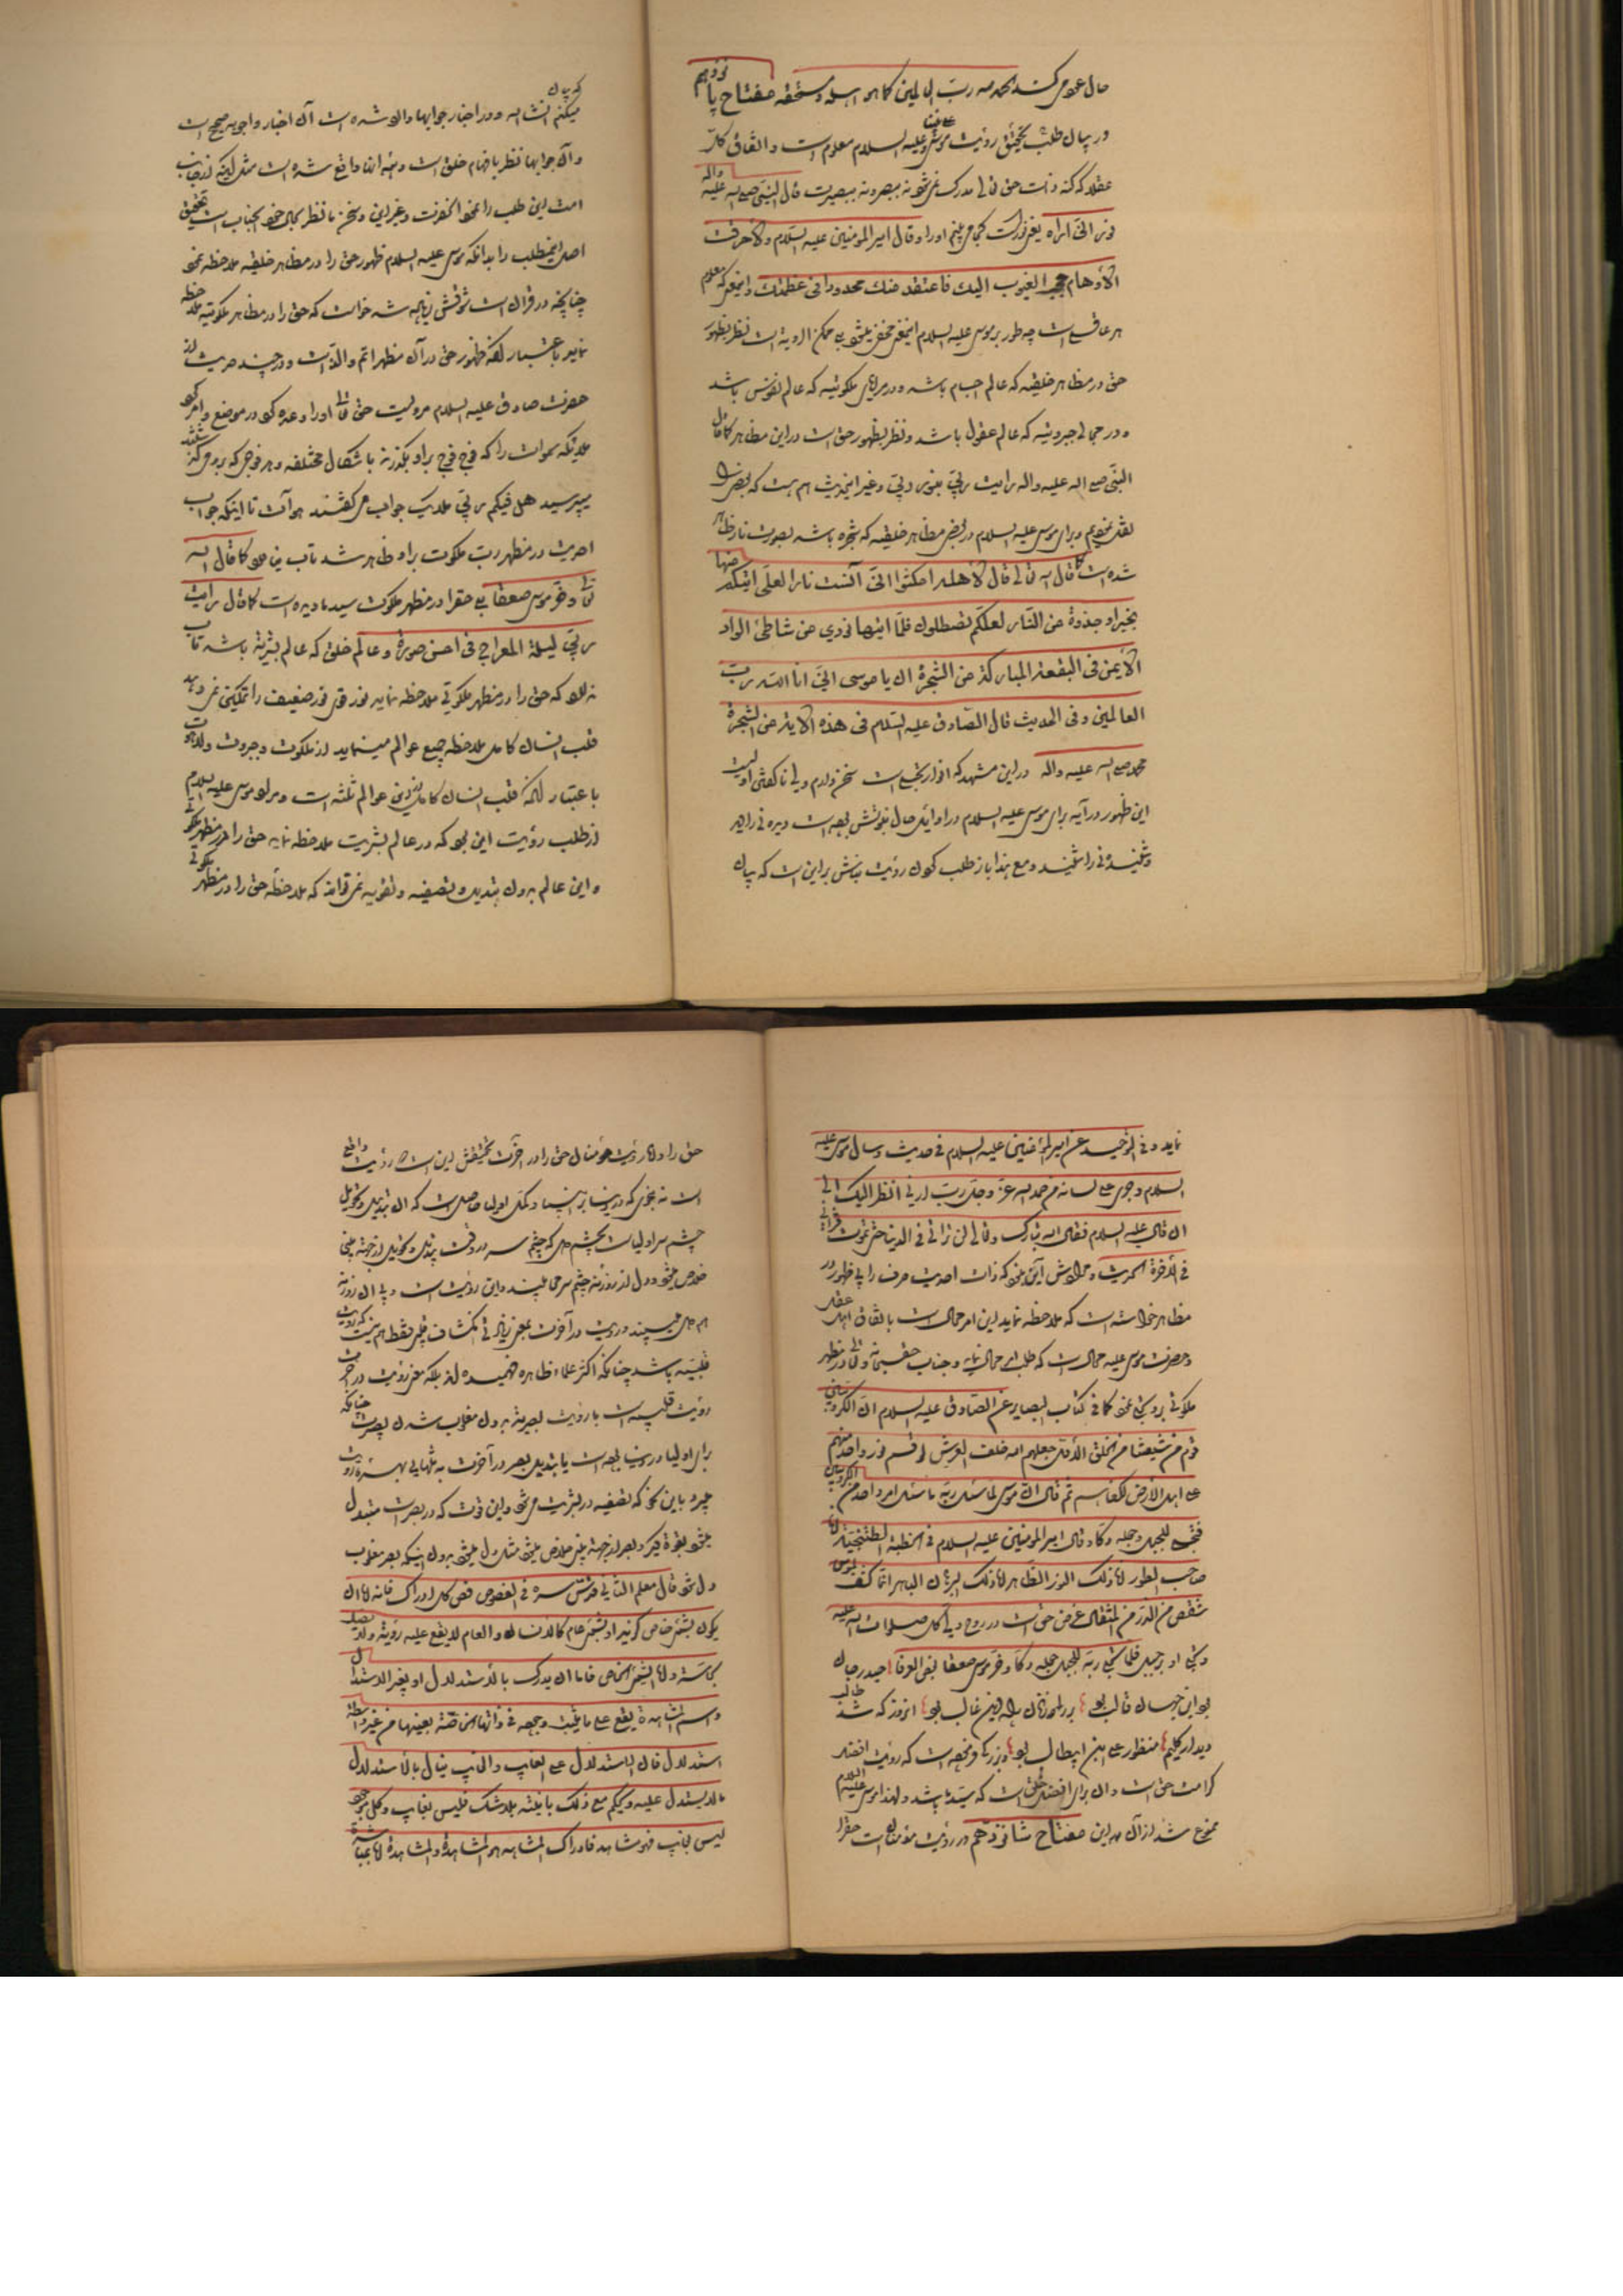 حال عروض کند الحمد لله رب العالمین کما هو اهله و مستحقه مفتاح پانزدهم
در بیان طلب تحقیق رؤیت موسی علیه السلام معلوم است و اتفاق کل
عقلا که کنه ذات حق تعالی مدرک نمی شود نه ببصر و نه ببصیرت قال النبی صلی الله علیه واله
نور انی اراه یعنی نور است کجا می بینم او را و قال امیر المومنین علیه السلام و لا خرقت
الاوهام حجب الغیوب الیک فاعتقد منک محدودا فی عظمتک و اینمعنی که معلوم
هر عاقل است چه طور بر موسی علیه السلام اینمعنی مخفی میشود بلی ممکن الرویة است نظر بظهور
حق در مظاهر خلقیه که عالم اجسام باشد و در مرایای ملکوتیه که عالم نفوس باشد
و در مجالی جبروتیه که عالم عقول باشد و نظر بظهور حق است در این مظاهر کما قال
النبی صلی الله علیه واله رایت ربی بنور ربی و غیر اینحدیث هم هست که بعض را
نقل نمودیم و برای موسی علیه السلام در بعض مظاهر خلقیه که شجره باشد بصورت نار ظاهر
شده است کما قال الله تعالی قال لاهله امکثوا انی آنست نارا لعلی اتیکم منها
بخبر او جذوة من النار لعلکم تصطلون فلما اتیها نودی من شاطئ الواد
الایمن فی البقعة المبارکة من الشجرة ان یا موسی انی انا الله رب
العالمین و فی الحدیث قال الصادق علیه السلام فی هذه الایة من الشجرة
محمد صلی الله علیه واله در این مشهد که انوار تجلی است سخن دارم ولی ناگفتنی اولیست
این ظهور در آیه برای موسی علیه السلام در اوایل حال نبوتش بوده است دیدنی را دید
و شنیدنی را شنید و مع هذا باز طلب کردن رؤیت بنابش بر این است که بیان
که بیان
میکنم انشا الله و در اخبار جوابها وارد شده است آن اخبار و اجوبه صحیح است
و آن جوابها نظر بافهام خلق است و بنه انها واقع شده است مثل اینکه از جانب
امت این طلب را نمود آنحضرت و غیر این و سخن ما نظر بحال خود آنجناب است تحقیق
اصل اینمطلب را بدانکه موسی علیه السلام ظهور حق را در مظاهر خلقیه ملاحظه نمود
چنانچه در قران است شوقش زیاده شد خواست که حق را در مظاهر ملکوتیه ملاحظه
نماید باعتبار آنکه ظهور حق در آن مظهر اتم و الذ است و در چند حدیث از
حضرت صادق علیه السلام مرویست حق تعالی او را وعده کرد در موضع و امر کرد
ملائکه سموات را که فوج فوج بر او بگذرند با شکال مختلفه و هر فوجی که بر وی گذشتند
میپرسید هل فیکم ربی ملائک جواب می گفتند هو آت تا اینکه جواب
احدیت در مظهر رب ملکوت بر او ظاهر شد تاب نیاورد کما قال الله
تعالی و خر موسی صعقا بلی حق را در مظهر ملکوت سید ما دیده است کما قال رایت
ربی لیلة المعراج فی احسن صورة و عالم خلق که عالم بشریة باشد تاب
ندارد که حق را در مظهر ملکوتی ملاحظه نماید نور قوی نور ضعیف را تمکین نمی دهد
قلب انسان کامل ملاحظه جمیع عوالم مینماید از ملکوت و جبروت و لاهوت
باعتبار آنکه قلب انسان کامل از این عوالم ثلثه است و مراد موسی علیه السلام
از طلب رؤیت این بود که در عالم بشریت ملاحظه نماید حق را در مظهر ملکوتی
و این عالم بدون تبدیل و تصفیه و تقویه نمی تواند که ملاحظه حق را در مظهر ملکوتی
نماید و فی التوحید عن امیر المؤمنین علیه السلام فی حدیث و سال موسی علیه
السلام و جری علی لسانه من حمد الله عز و جل رب ارنی انظر الیک الی
ان قال علیه السلام فقال الله تبارک و تعالی لن ترانی فی الدنیا حتی تموت فترانی
فی الاخرة الحدیث و حاصلش آنی که ذات احدیت صرف را بی ظهور در
مظاهر خواسته است که ملاحظه نماید این امر محال است باتفاق اهل عقل
و حضرت موسی علیه محال است که طلب امر محال نماید و جناب حقسبحانه و تعالی در مظهر
ملکوتی بر وی تجلی نمود کما فی کتاب البصایر عن الصادق علیه السلام ان الکروبیین
قوم من شیعتنا من الخلق الاول جعلهم الله خلف العرش لو قسم نور واحد منهم
علی اهل الارض لکفاهم ثم قال ان موسی لما سئل ربه ما سئل امر واحدا من الکروبیین
فتجلی للجبل و جعله دکا و قال امیر المومنین علیه السلام فی الخطبة الطتنجیة انا
صاحب الطور انا ذلک النور الظاهر انا ذلک البرهان الباهر انما کشف لموسی
شقص من الذر من المثقال غرض حق است در روح ولی کل صلوات الله علیه
و تجلی او بر جبل فلما تجلی ربه للجبل جعله دکا و خر موسی صعقا لبعض العرفا حیدر جان
بود این جهان قالب بود بر لمعه نار الله این غالب بود انروز که شد طالب
دیدار کلیم منظور علی ابن ابیطالب بود و بزرگی فرموده است که رؤیت افضل
کرامت حق است و آن برای افضل خلق است که سید ما باشد و لهذا موسی علیه السلام
ممنوع شد از آن در این مفتاح شانزدهم در رؤیت مؤمنان است حق را
حق را و اما رؤیت مؤمنان حق را در آخرت تحقیقش این است که رؤیت واقع
است نه بنحوی که در دنیا بر انبیا و کمل اولیا حاصل است که ان تبدیل و تحویل
چشم سر اولیا است بچشم دل که چشم سر در وقت تبدیل و تحویل از جهة بینی
خلاص میشود و دل از روزنه چشم سر می بیند و این رؤیت است و بی ان روزنه
هم دل می بیند و رؤیت در آخرت بمعنی زیادتی انکشاف قلبی فقط هم نیست که رؤیت
قلبیه باشد چنانکه اکثر علماء ظاهره فهمیده اند بلکه معنی رؤیت در آخرت
رؤیت قلبیه است با رؤیت بصریة بدون مغلوب شدن بصیرت چنانکه
برای اولیا در دنیا بوده است یا تبدیل بصر در آخرت به تنهایی بهره رؤیت
میبرد باین نحو که تصفیه در بشریت می شود و این قوت که در بصیرت متبدل
میشود بقوة دیگر و بصر از جهة بینی خلاص میشود مثل دل میشود بدون اینکه بصر مغلوب
دل شود قال معلم الثانی قدس سره فی الفصوص فص کل ادراک فانه اما ان
یکون بشئ خاص کزید او بشئ عام کالانسان و العام لا یقع علیه رؤیة و لا یصل
بحاسة و اما الشئ الخاص فاما ان یدرک بالاستدلال او بغیر الاستدلال
و اسم المشاهدة یقع علی ما یثبت وجوده فی ذاتها الخاصة بعینها من غیر واسطة
استدلال فان الاستدلال علی الغایب و الغایب ینال بالاستدلال
ما لا یستدل علیه و یحکم مع ذلک بانیته بلا شک فلیس بغایب و کل موجود
لیس بغایب فهو شاهد فادراک المشاهد هو المشاهدة و المشاهدة اما بمباشرة